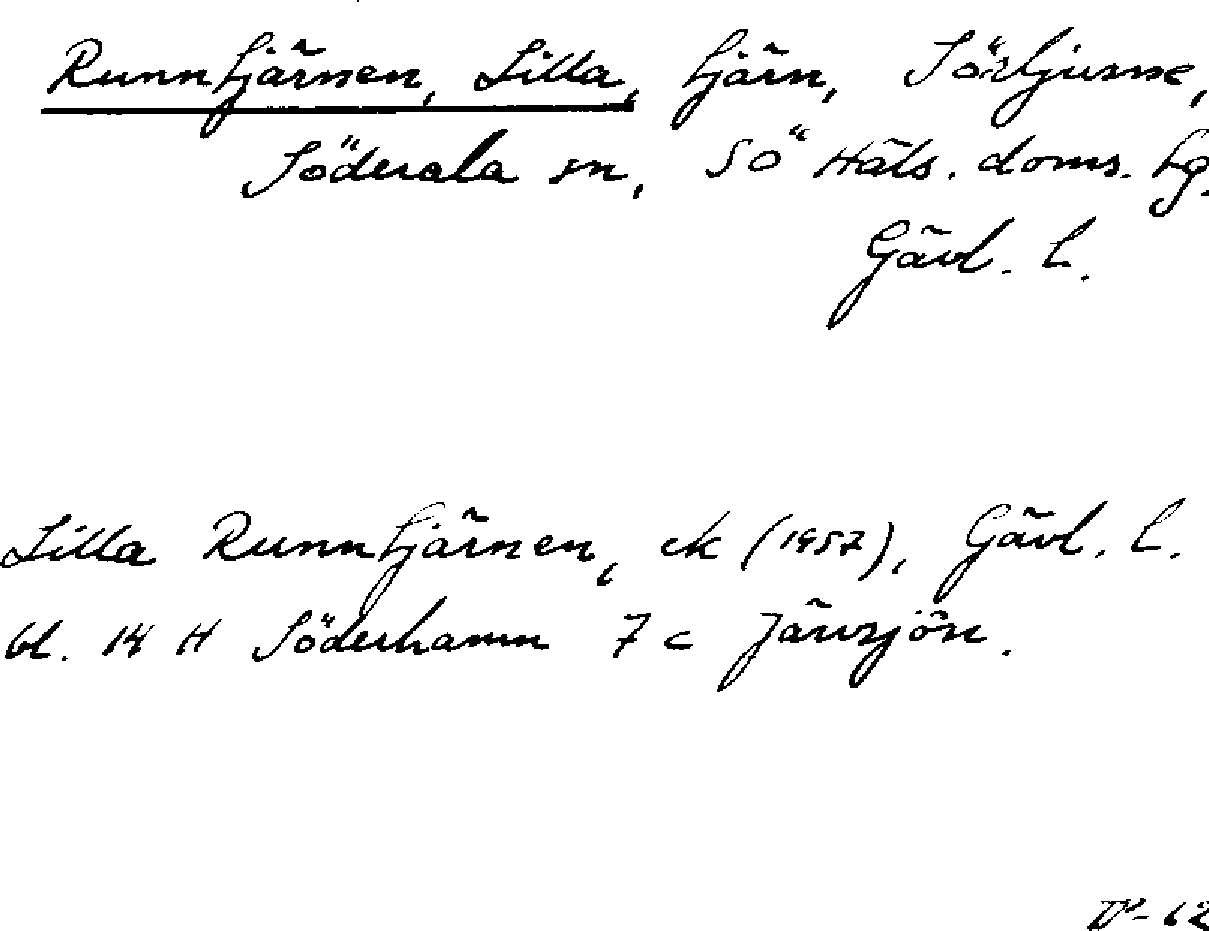 Runntjärnen, Lilla, tjärn, Sörljusne,
Söderala sn, SÖ Häls. doms. tg.
Gävl. l.
Lilla Runntjärnen, ek (1957), Gävl. l.
bl. 14 H Söderhamn 7 c Järvsjön.